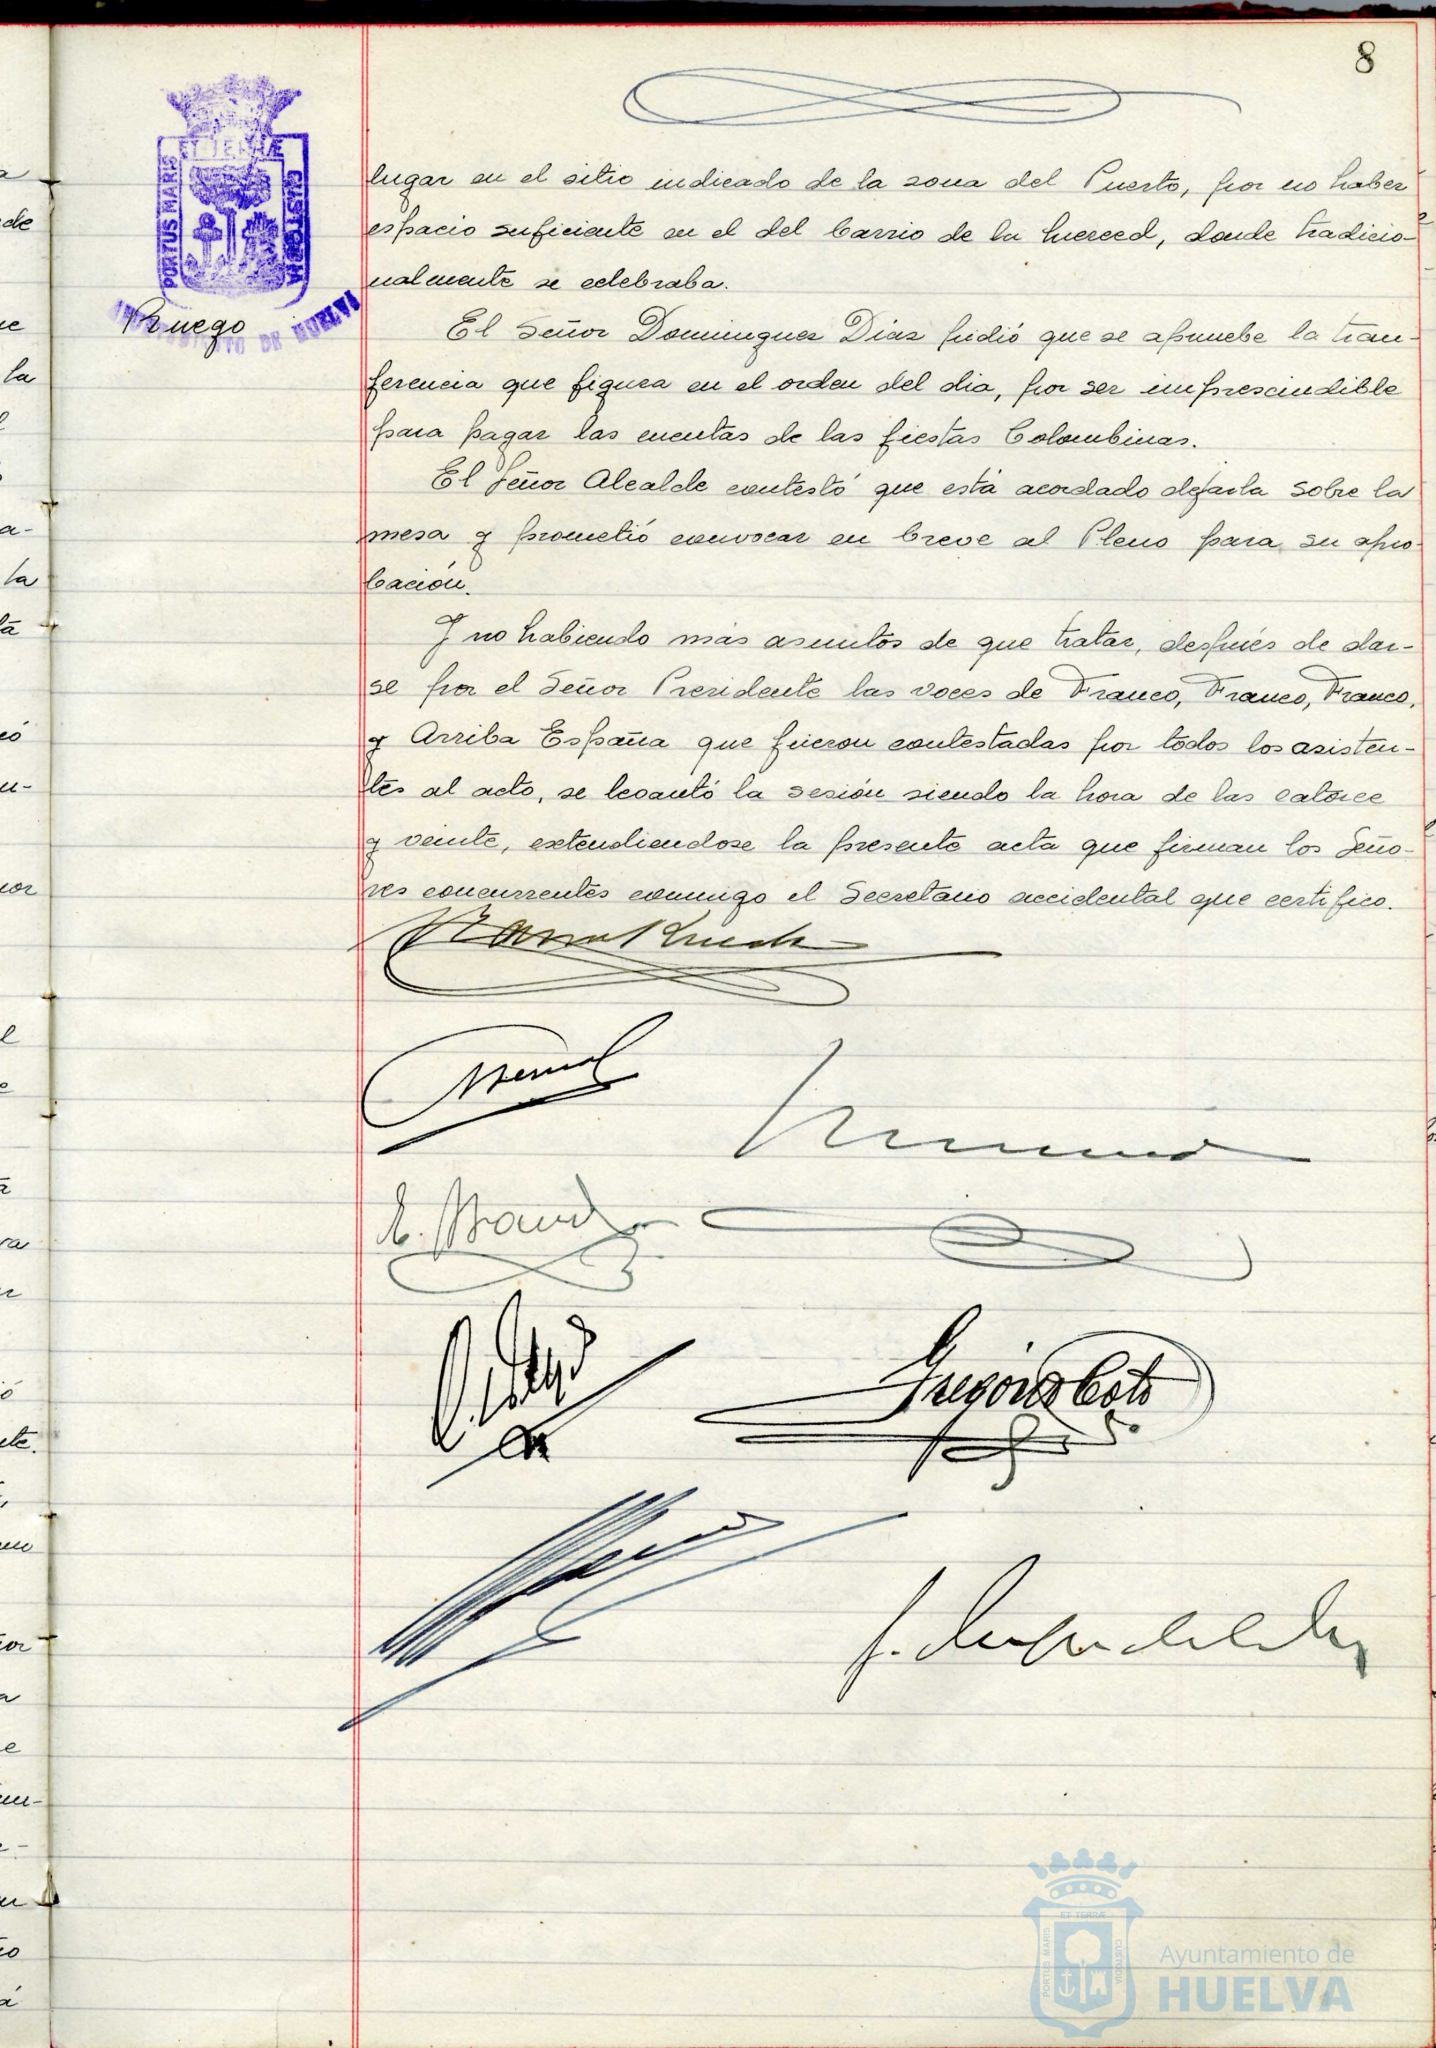 8
PORTUS MARIS
ET TERRÆ
CUSTODIA
AYUNTAMIENTO DE HUELVA
Ruego
lugar en el sitio indicado de la zona del Puerto, por no haber
espacio suficiente en el del barrio de la Merced, donde tradicio-
nalmente se celebraba.
El Señor Dominguez Diaz pidió que se apruebe la tran-
ferencia que figura en el orden del dia, por ser imprescindible
para pagar las cuentas de las fiestas Colombinas.
El Señor Alcalde contestó que está acordado dejarla sobre la
mesa y prometió convocar en breve al Pleno para su apro-
bación.
Y no habiendo más asuntos de que tratar, después de dar-
se por el Señor Presidente las voces de Franco, Franco, Franco,
y Arriba España que fueron contestadas por todos los asisten-
tes al acto, se levantó la sesión siendo la hora de las catorce
y veinte, extendiendose la presente acta que firman los Seño-
res concurrentes conmigo el Secretario accidental que certifico.
Gregorio Coto
ET TERRÆ
PORTUS MARIS
CUSTODIA
Ayuntamiento de
HUELVA